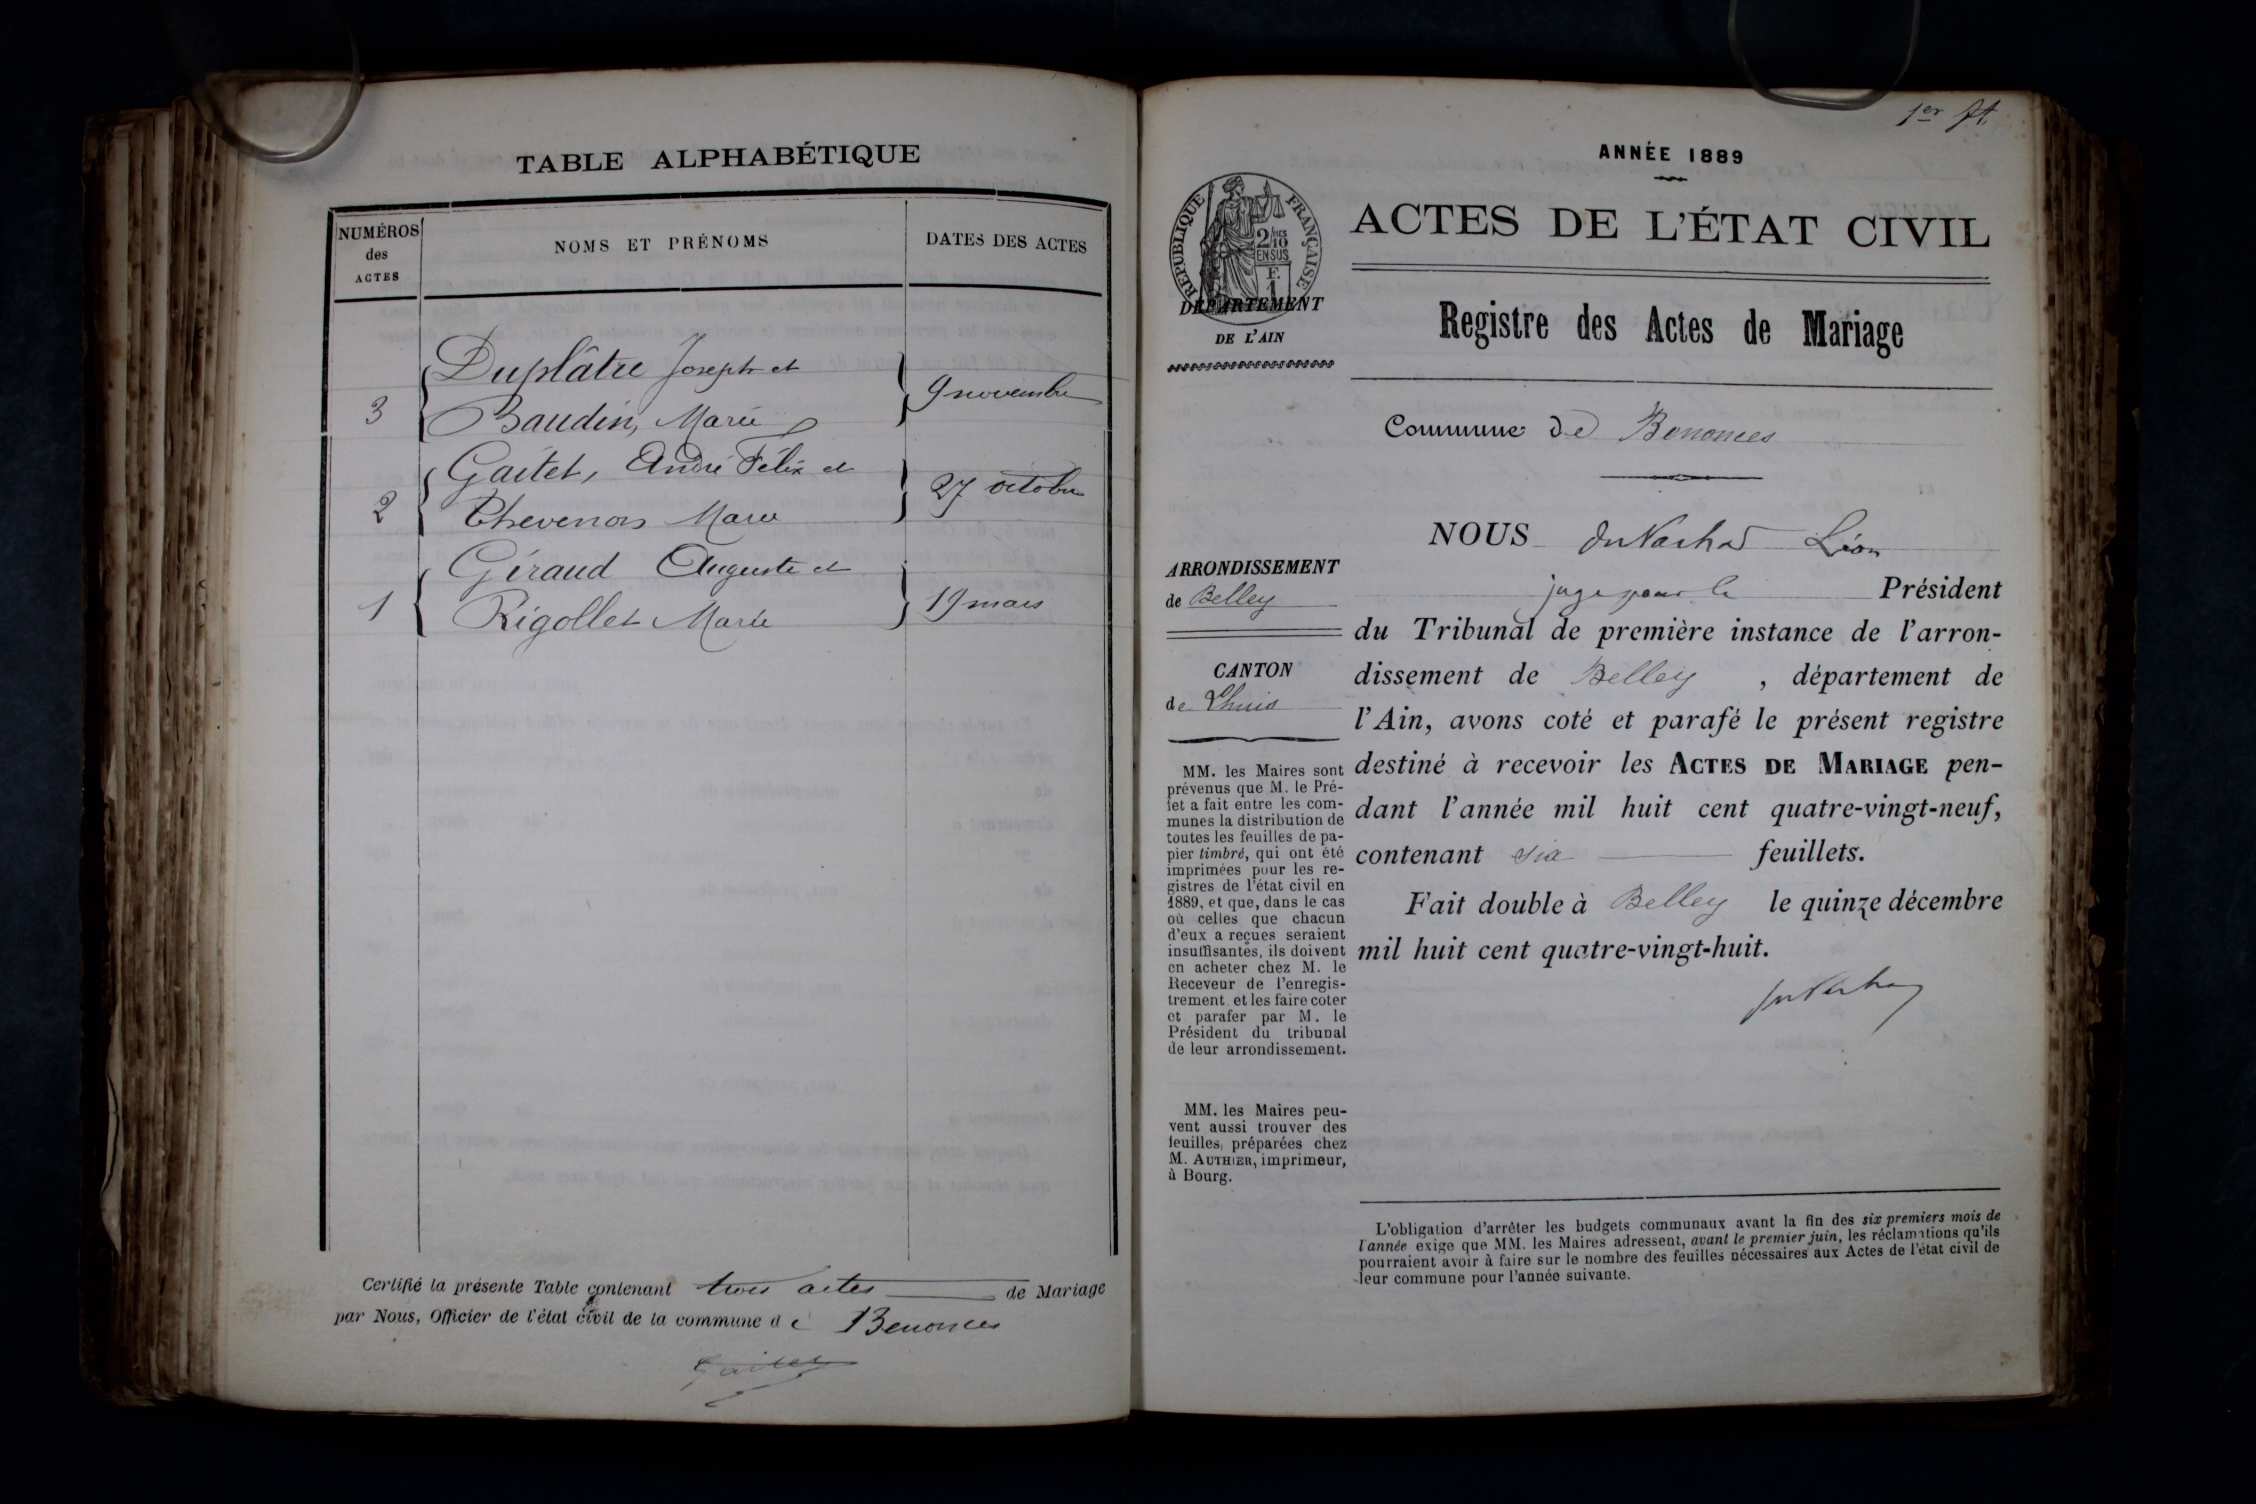 TABLE ALPHABÉTIQUE
NUMÉROS
des
ACTES
NOMS ET PRÉNOMS
DATES DES ACTES
Duplâtre Joseph et
3
Baudin, Marie
9 novembre
Gaitet, André Félix et
2
Thevenon Marie
27 octobre
Géraud Auguste et
1
Rigollet Marie
19 mars
Certifié la présente Table contenant trois actes de Mariage
par Nous, Officier de l'état civil de la commune de Benonces
Gaitet
1er ft.
ANNÉE 1889
RÉPUBLIQUE FRANÇAISE
2/10
EN SUS
F.
1
DÉPARTEMENT
DE L'AIN
ACTES DE L'ÉTAT CIVIL
Registre des Actes de Mariage
Commune de Benonces
ARRONDISSEMENT
de Belley
CANTON
de Lhuis
MM. les Maires sont
prévenus que M. le Pré-
fet a fait entre les com-
munes la distribution de
toutes les feuilles de pa-
pier timbré, qui ont été
imprimées pour les re-
gistres de l'état civil en
1889, et que, dans le cas
où celles que chacun
d'eux a reçues seraient
insuffisantes, ils doivent
en acheter chez M. le
Receveur de l'enregis-
trement et les faire coter
et parafer par M. le
Président du tribunal
de leur arrondissement.
MM. les Maires peu-
vent aussi trouver des
feuilles préparées chez
M. AUTHIER, imprimeur,
à Bourg.
NOUS Léon
juge pour le Président
du Tribunal de première instance de l'arron-
dissement de Belley, département de
l'Ain, avons coté et parafé le présent registre
destiné à recevoir les ACTES DE MARIAGE pen-
dant l'année mil huit cent quatre-vingt-neuf,
contenant six feuillets.
Fait double à Belley le quinze décembre
mil huit cent quatre-vingt-huit.
L'obligation d'arrêter les budgets communaux avant la fin des six premiers mois de
l'année exige que MM. les Maires adressent, avant le premier juin, les réclamations qu'ils
pourraient avoir à faire sur le nombre des feuilles nécessaires aux Actes de l'état civil de
leur commune pour l'année suivante.